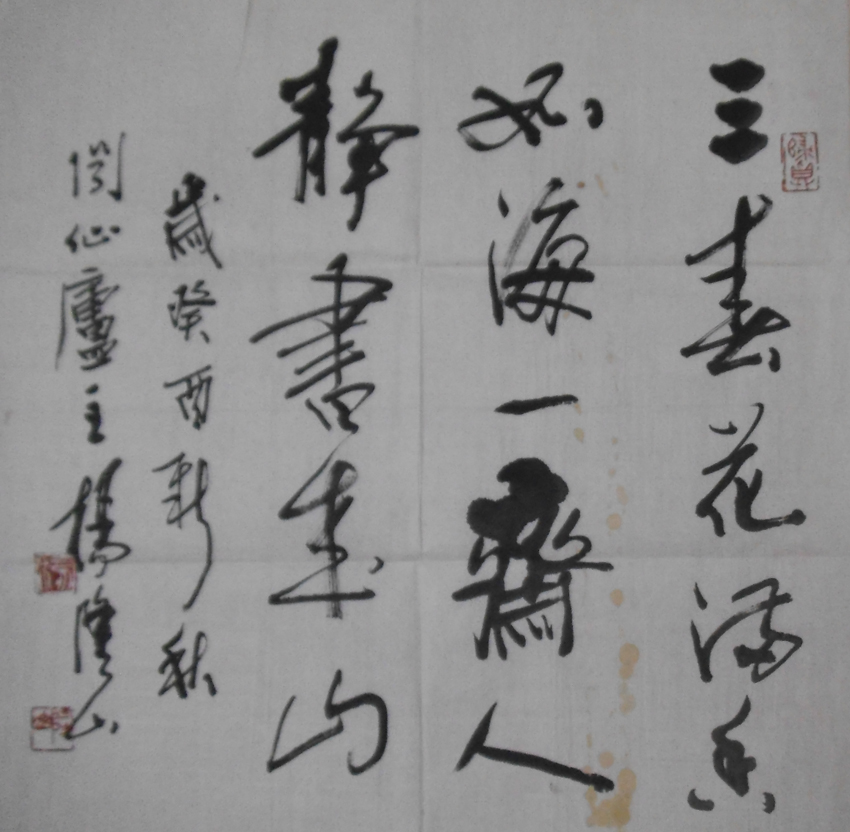 三春花滿香
如海一齋人
靜書山
歲癸酉新秋
仙廬主楊隆山